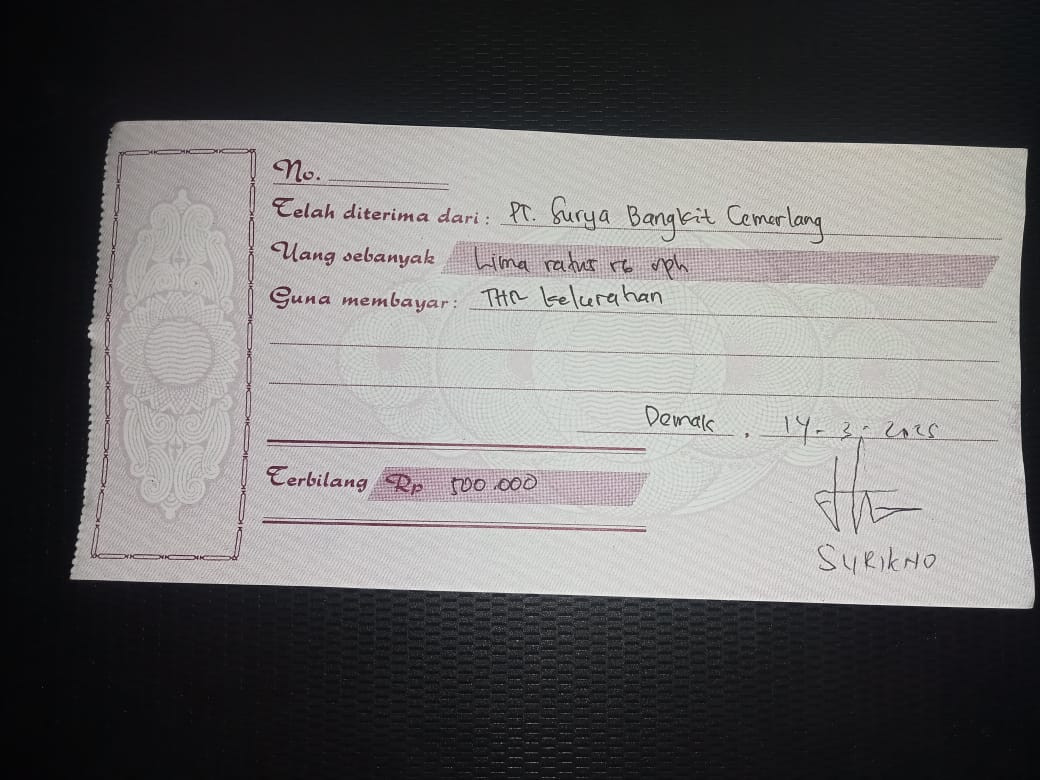 No.
Telah diterima dari: PT. Surya Bangkit Cemerlang
Uang sebanyak Lima ratus rb rph
Guna membayar: THR kelurahan
Demak, 14-3-2025
Terbilang Rp 500.000
SURIKNO